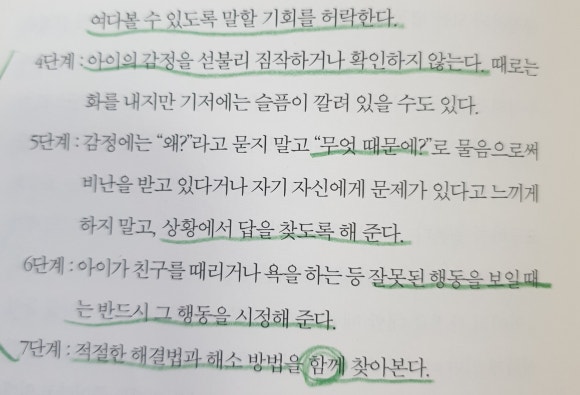 여다볼 수 있도록 말할 기회를 허락한다.
4단계 : 아이의 감정을 섣불리 짐작하거나 확인하지 않는다. 때로는
화를 내지만 기저에는 슬픔이 깔려 있을 수도 있다.
5단계 : 감정에는 “왜?”라고 묻지 말고 “무엇 때문에?”로 물음으로써
비난을 받고 있다거나 자기 자신에게 문제가 있다고 느끼게
하지 말고, 상황에서 답을 찾도록 해 준다.
6단계 : 아이가 친구를 때리거나 욕을 하는 등 잘못된 행동을 보일 때
는 반드시 그 행동을 시정해 준다.
7단계 : 적절한 해결법과 해소 방법을 함께 찾아본다.